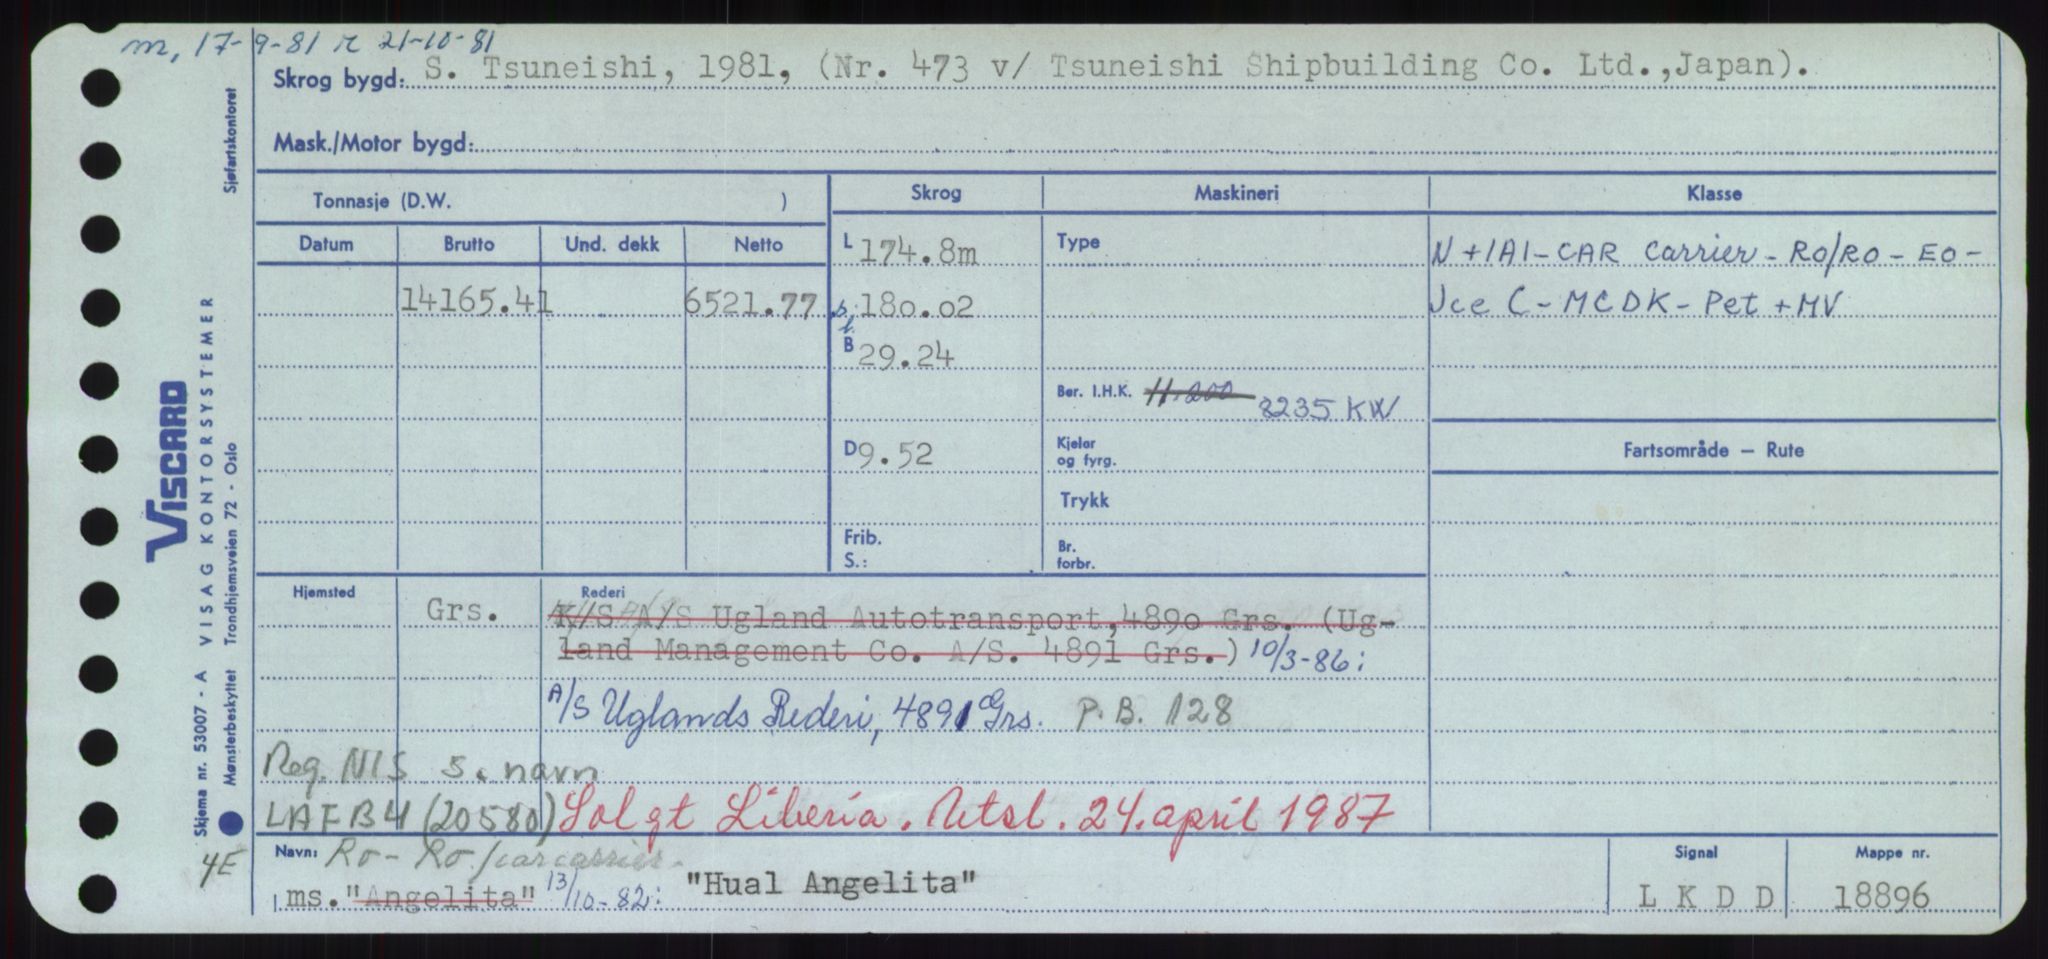 m, 17-9-81 r 21-10-81
Skrog bygd: S. Tsuneishi, 1981, (Nr. 473 v/ Tsuneishi Shipbuilding Co. Ltd.,Japan).
Mask./Motor bygd:
Tonnasje (D.W. )
Skrog
Maskineri
Klasse
Datum
Brutto
Und. dekk
Netto
14165.41
6521.77
L 174.8m
b.l. 180.02
B 29.24
D 9.52
Frib.
S.:
Type
Ber. I.H.K. 11.200 8235 KW
Kjeler
og fyrg.
Trykk
Br.
forbr.
N +1A1-CAR Carrier - RO/RO - EO -
Ice C - MCDK - Pet + MV
Fartsområde — Rute
Hjemsted
Grs.
Rederi
K/S A/S Ugland Autotransport,4890 Grs. (Ug-
land Management Co. A/S. 4891 Grs.) 10/3-86:
A/S Uglands Rederi, 4891 Grs. P.B. 128
Reg. NIS s. navn
LAFB4 (20580) Solgt Liberia. Utsl. 24. april 1987
Navn: Ro-Ro/carcarrier
ms. "Angelita" 13/10-82: "Hual Angelita"
Signal
L K D D
Mappe nr.
18896
VISCARD
VISAG KONTORSYSTEMER
Trondhjemsveien 72 - Oslo
Sjøfartskontoret
Skjema nr. 53007 - A
Mønsterbeskyttet
4E